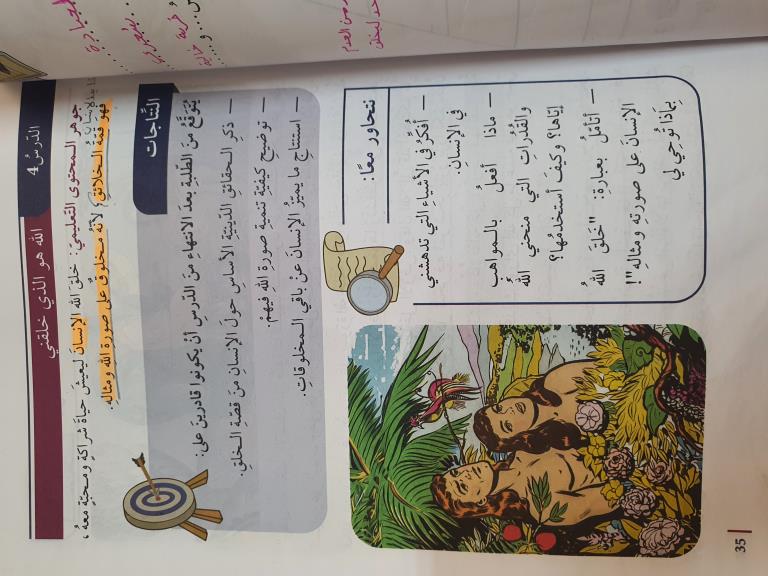 الدّرسُ 4
الله هو الذي خلقني
جوهر المحتوى التعليمي: خلقَ الله الإنسانَ ليعيشَ حياةَ شراكة ومحبّة معهُ،
فهو قمّةُ الخلائقِ، لأنّه مخلوقٌ على صورة اللهِ ومثالِه.
النّتاجات
يُتَوقّعُ منَ الطّلبةِ بعدَ الانتهاءِ منَ الدّرسِ أنْ يكونوا قادرينَ على:
– ذكرِ الحقائقِ الدّينيّة الأساسِ حولَ الإنسانِ منْ قصّة الخلقِ.
– توضيحِ كيفيّة تنميةِ صورةِ اللهِ فيهمْ.
– استنتاجِ ما يميّزُ الإنسانَ عنْ باقي المخلوقاتِ.
نتحاور معًا:
– أفكّرُ في الأشياءِ التي تدهشني
في الإنسانِ.
– ماذا أفعلُ بالمواهبِ
والقُدُراتِ التي منحني اللهُ
إيّاها؟ وكيفَ أستخدمُها؟
– أتأمّلُ بعبارةِ: "خلَقَ اللهُ
الإنسانَ على صورتِه ومثالِهِ"!
بماذا تُوحي لي
35